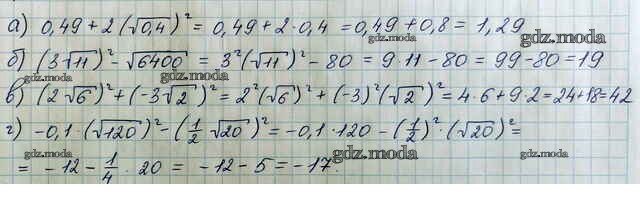 а) 0,49 + 2 (√0,4)² = 0,49 + 2 · 0,4 = 0,49 + 0,8 = 1,29
gdz.moda
gdz.moda
б) (3√11)² - √6400 = 3² (√11)² - 80 = 9 · 11 - 80 = 99 - 80 = 19
gdz.moda
gdz.moda
в) (2√6)² + (-3√2)² = 2² (√6)² + (-3)² (√2)² = 4 · 6 + 9 · 2 = 24 + 18 = 42
gdz.moda
г) -0,1 · (√120)² - (½ √20)² = -0,1 · 120 - (½)² · (√20)² =
gdz.moda
gdz.moda
= -12 - ¼ · 20 = -12 - 5 = -17.